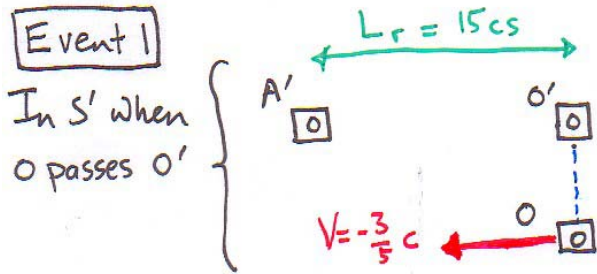 Event 1
In S' when
O passes O'
L_r = 15cs
A'
0
O'
0
O
0
V = -3/5 c